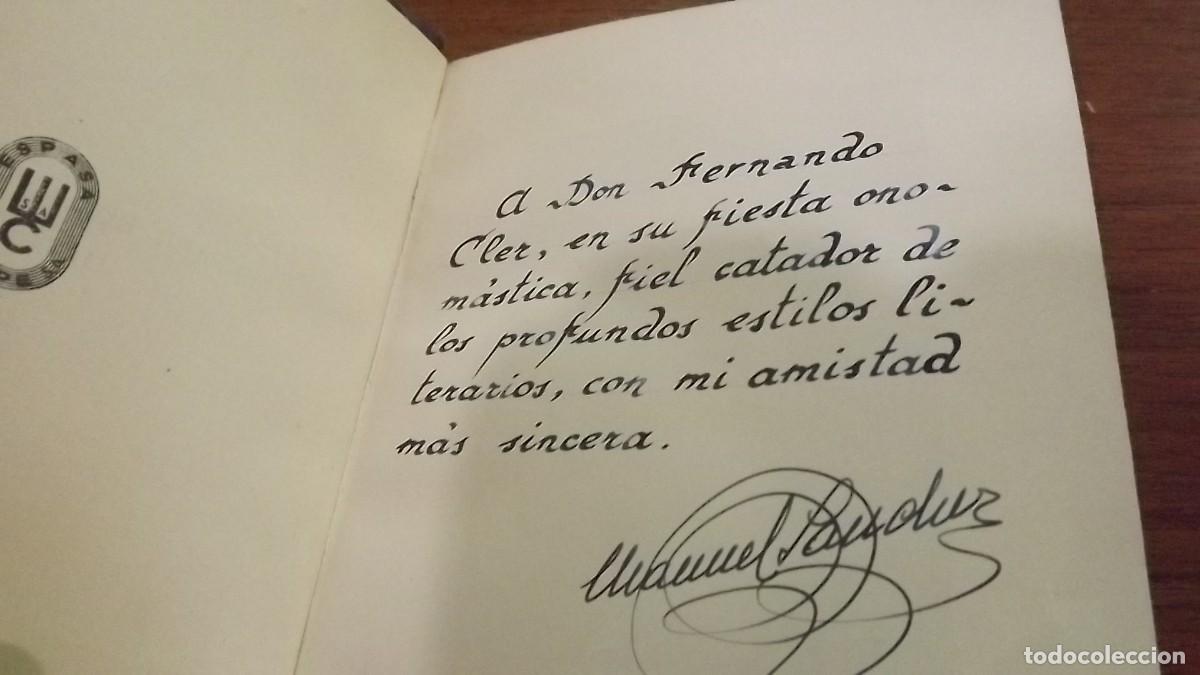 ESPASA
S A
C
DE
A Don Fernando
Cler, en su fiesta ono-
mástica, fiel catador de
los profundos estilos li-
terarios, con mi amistad
más sincera.
Manuel
todocoleccion